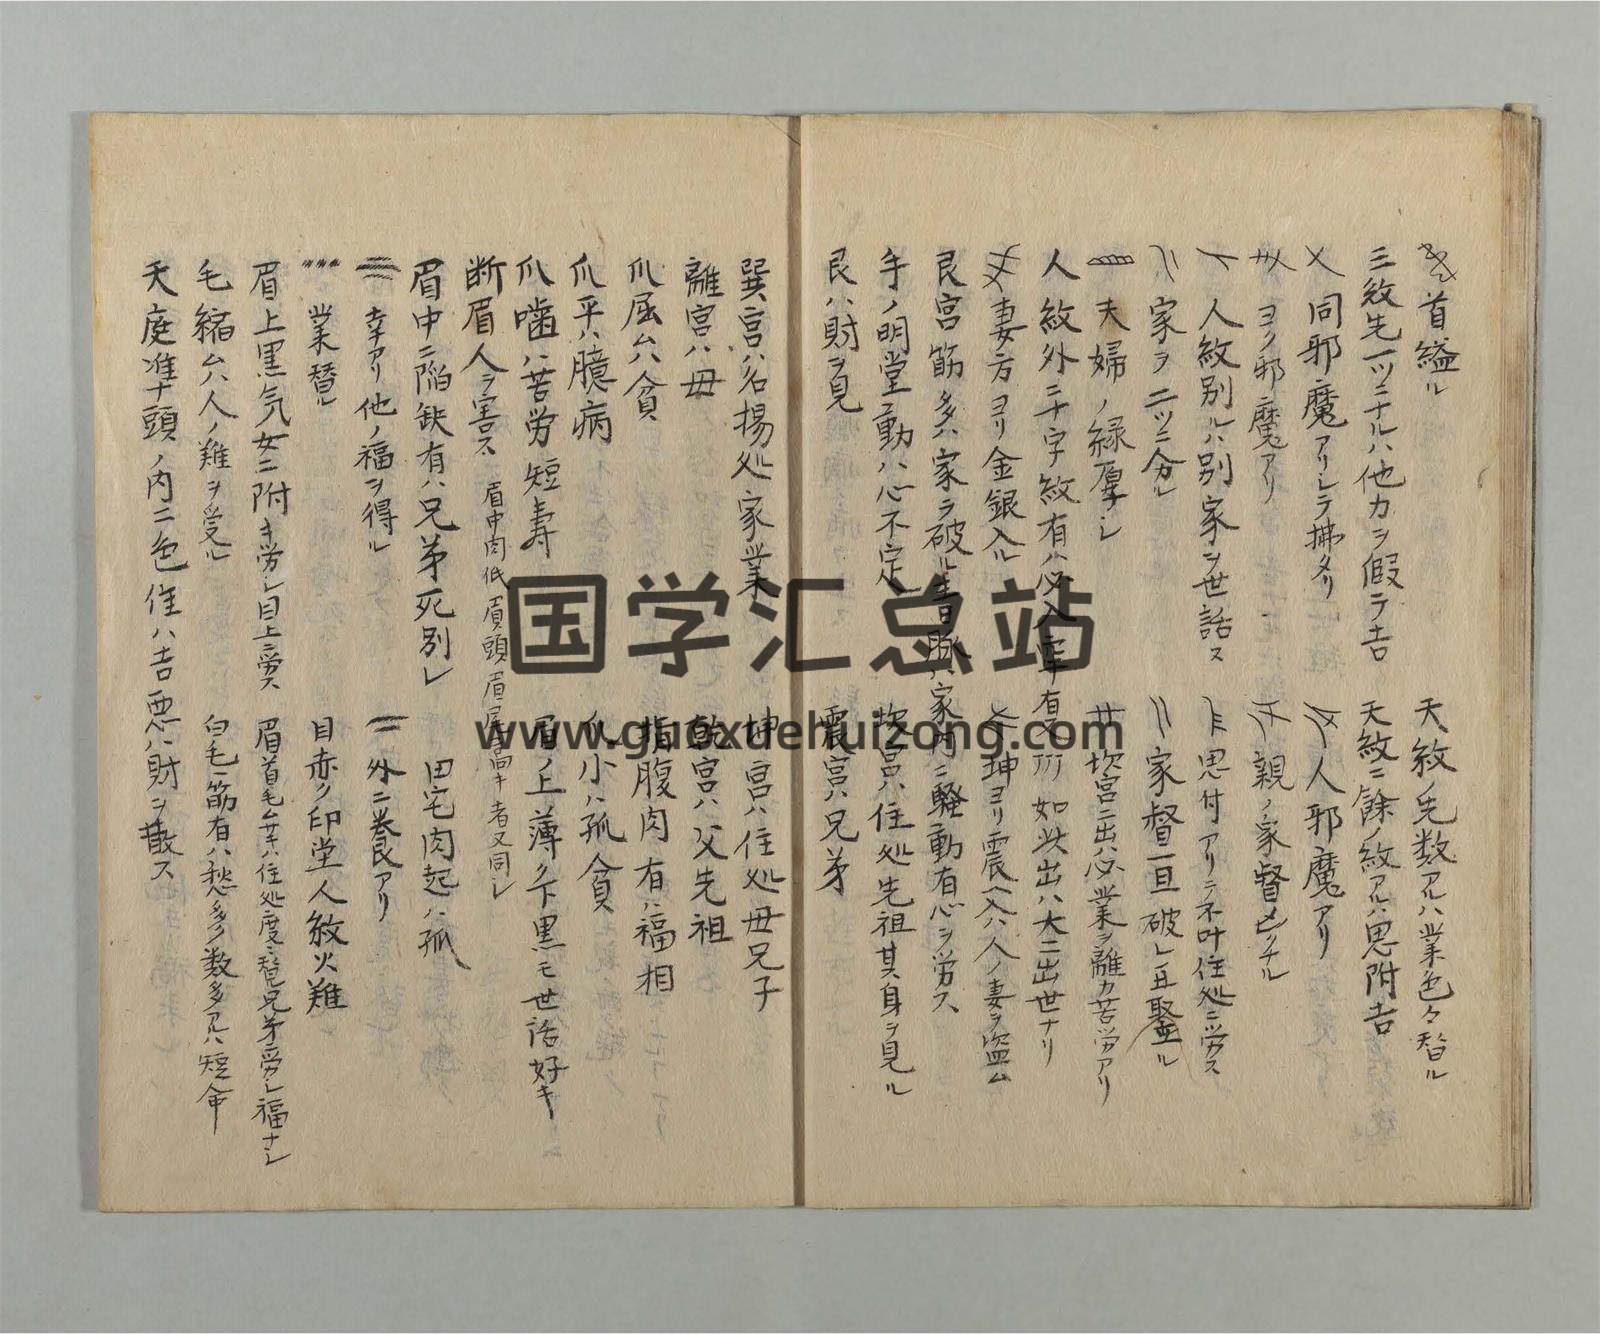 首縊ル
天紋ノ先数アルハ業色々替ル
三紋先一ツニナルハ他力ヲ假テ吉
天紋ニ餘ノ紋アルハ思附吉
同邪魔アリシテ拂タリ
人邪魔アリ
ヨリ邪魔アリ
親ノ家督
人紋別ルハ別家ヲ世話ス
思付アリテ不叶住処ニ労ス
家ヲ二ツニ分ル
家督一旦破レ
夫婦ノ縁厚シ
坎宮ニ出ハ必業ヲ離カ苦労アリ
人紋外ニ十字紋有ハ必入牢有又 如此出ハ大ニ出世ナリ
妻方ヨリ金銀入ル
坤ヨリ震ヘ入ハ人ノ妻ヲ盗ム
艮宮筋多ハ家ヲ破ル青脈ハ家内ニ騒動有心ヲ労ス
手ノ明堂動ハ心不定
坎宮ハ住処先祖其身ヲ見ル
艮ハ財ヲ見
震宮ハ兄弟
巽宮ハ名揚処家業
坤宮ハ住処母兄子
離宮ハ母
乾宮ハ父先祖
爪屈ムハ貧
指腹肉有ハ福相
爪平ハ臆病
爪小ハ孤貧
爪噛ハ苦労短寿
眉ノ上薄ク下黒モ世話好キ
断眉人ヲ害ス 眉中肉低眉頭眉尾高キ者又同シ
眉中ニ陥缺有ハ兄弟死別レ
田宅肉起ハ孤
幸アリ他ノ福ヲ得ル
外ニ養アリ
業替ル
目赤ク印堂人紋火難
眉上黒気女ニ附キ労シ目上ニ労ス
眉首毛ムサハ住処度々替兄弟ニ労シ福ナシ
毛縮ムハ人ノ難ヲ受ル
白毛一筋有ハ愁多ク数多アルハ短命
天庭准ナ頭ノ内ニ色住ハ吉悪ハ財ヲ散ス
国学汇总站
www.guoxuehuizong.com